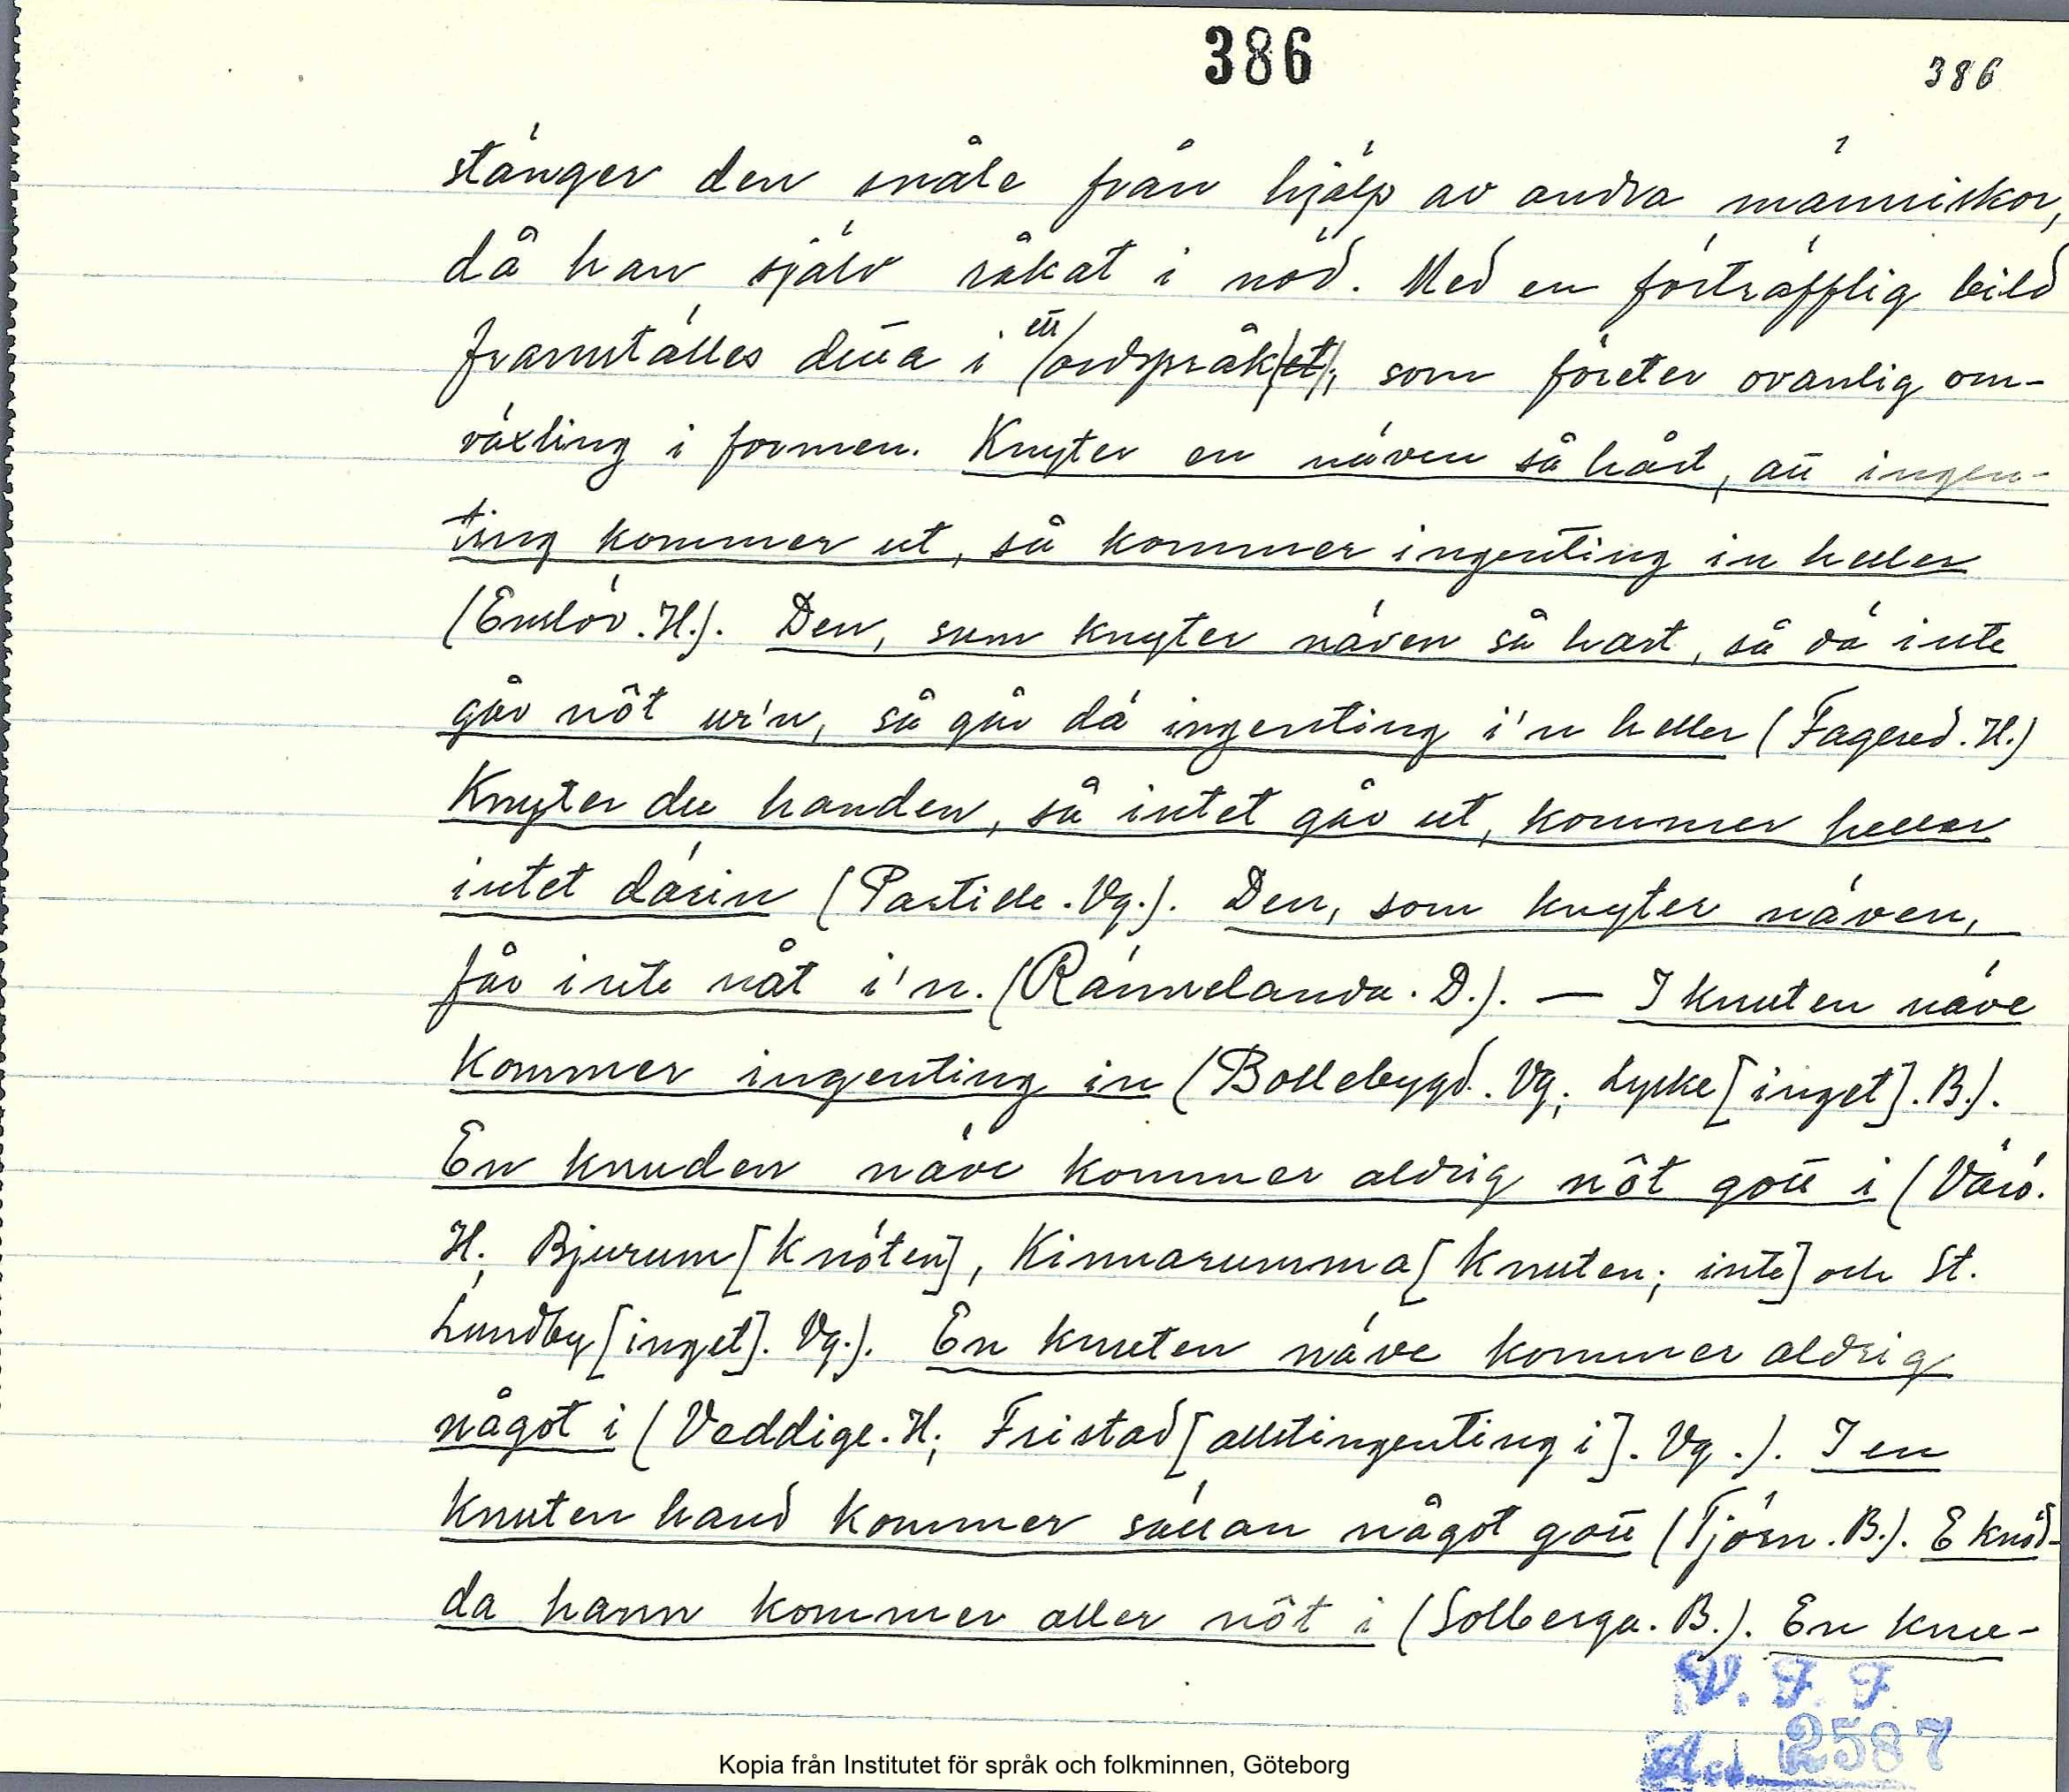 386
386
stänger den snåle från hjälp av andra människor,
då han själv råkat i nöd. Med en förträfflig bild
framställes detta i ett ordspråk(et), som företer ovanlig om-
växling i formen. Knyter en näven så hårt, att ingen-
ting kommer ut, så kommer ingenting in heller
(Enslöv. H.). Den, som knyter näven så hart, så dä inte
går nôt ur'n, så går dä ingenting i'n heller (Fagered. H.)
Knyter du handen, så intet går ut, kommer heller
intet därin (Partille. Vg.). Den, som knyter näven,
får inte nåt i'n. (Rännelanda. D.). — I knuten näve
kommer ingenting in (Bollebygd. Vg; Lycke [inget]. B.).
En knuden näve kommer aldrig nôt gott i (Värö.
H; Bjurum [knöten], Kinnarumma [knuten; inte] och St.
Lundby [inget]. Vg.). En knuten näve kommer aldrig
något i (Veddige. H; Fristad [allstingenting i]. Vg.). I en
knuten hand kommer sällan något gott (Tjörn. B.). E knöd-
da hann kommer aller nôt i (Solberga. B.). En knu-
V. F. F.
Acc. 2587
Kopia från Institutet för språk och folkminnen, Göteborg